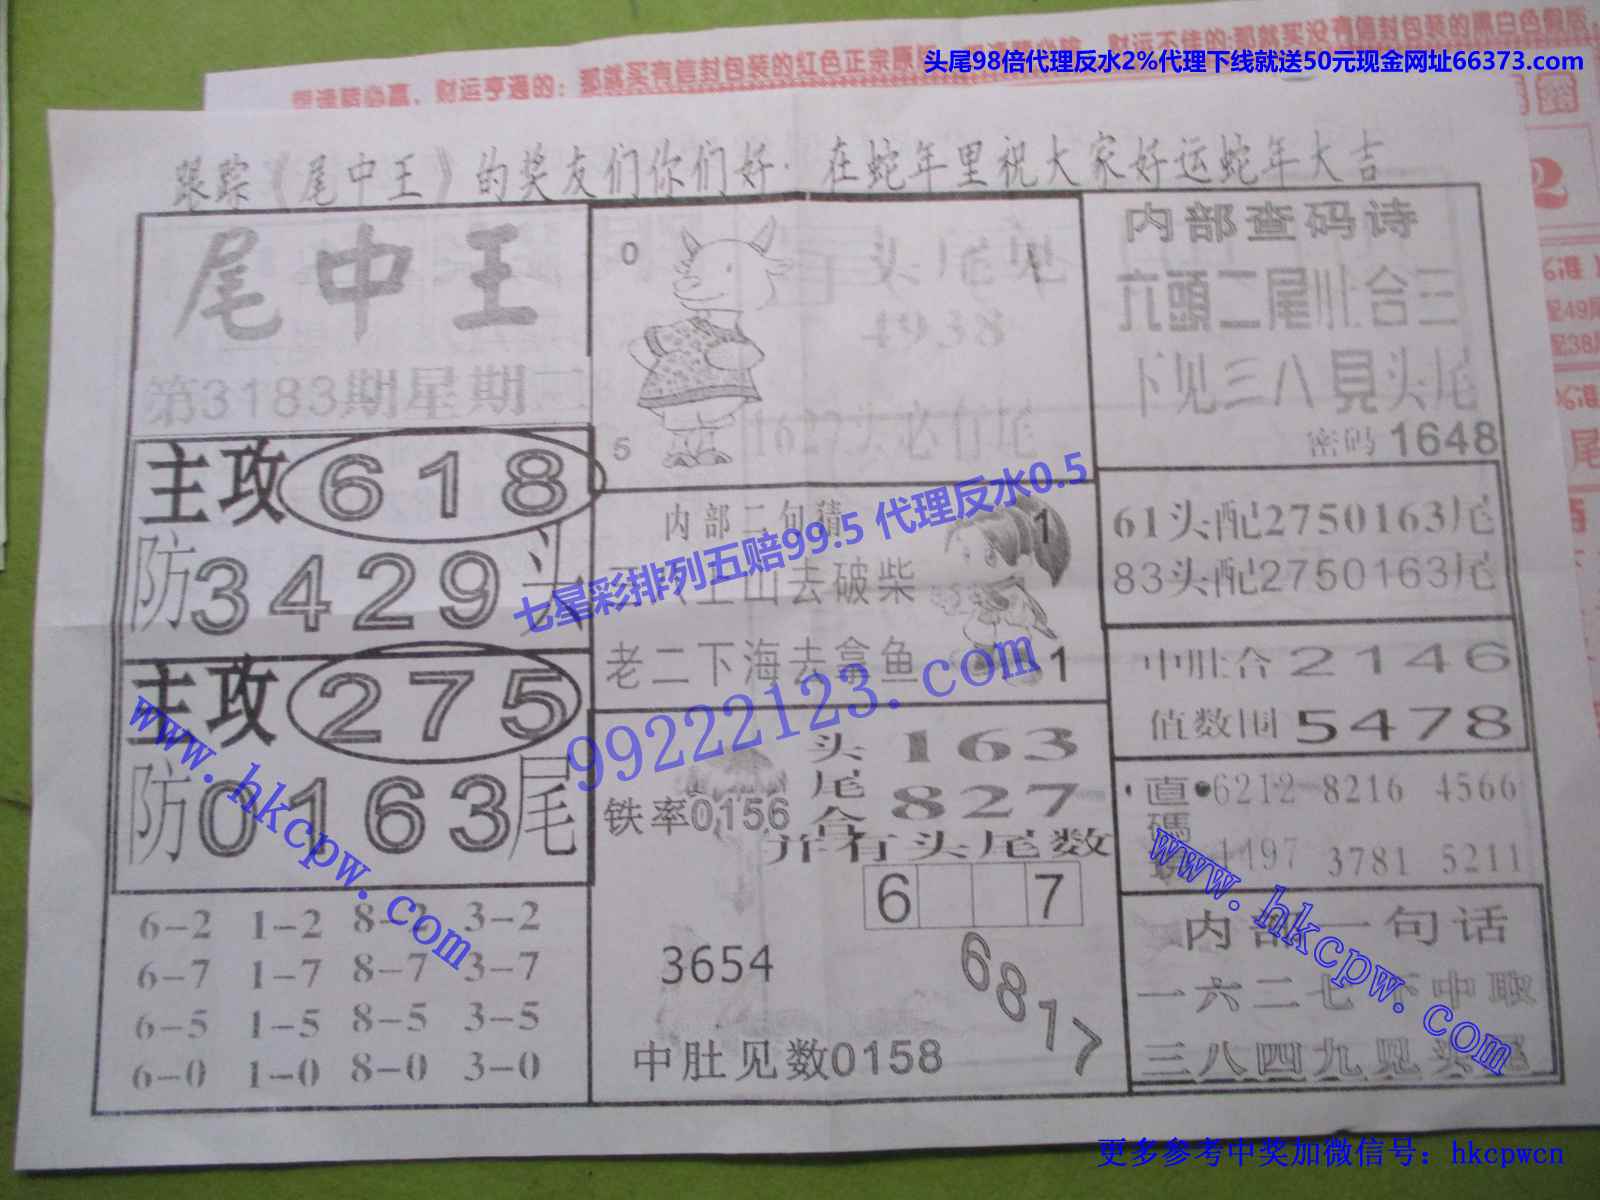 头尾98倍代理反水2%代理下线就送50元现金网址66373.com
财运亨通的：那就买有信封包装的红色正宗原
财运不佳的：那就买没有信封包装的黑白色假版，
跟踪《尾中王》的奖友们你们好．在蛇年里祝大家好运蛇年大吉
尾中王
第3183期星期二
主攻618
防3429头
主攻275
防0163尾
6-2 1-2 8-2 3-2
6-7 1-7 8-7 3-7
6-5 1-5 8-5 3-5
6-0 1-0 8-0 3-0
0
5
头尾见
4938
1627头必有尾
内部二句猜
上山去破柴
老二下海去拿鱼
1
1
头 163
尾
合 827
铁率0156
并有头尾数
6 7
3654
6817
中肚见数0158
内部查码诗
六頭二尾肚合三
下见三八見头尾
密码1648
61头配2750163尾
83头配2750163尾
中肚合2146
值数围5478
直碼
6212 8216 4566
4497 3781 5211
内部一句话
一六二七下中取
三八四九见头尾
七星彩排列五赔99.5 代理反水0.5
99222123.com
www.hkcpw.com
www.hkcpw.com
更多参考中奖加微信号：hkcpwcn